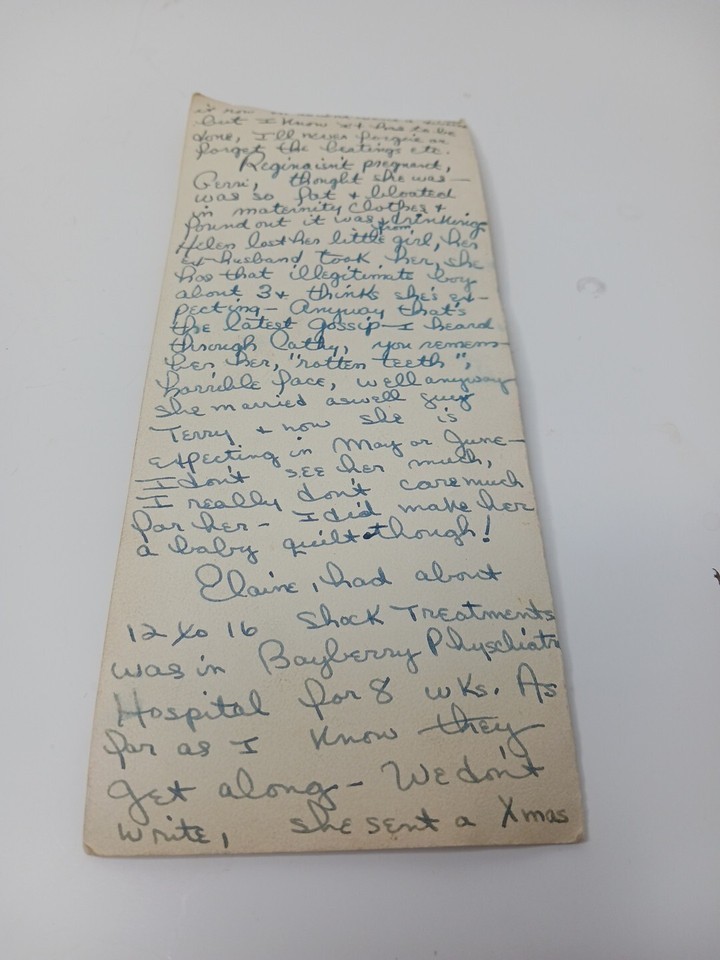 is now
but I know it has to be
done, I'll never forgive or
forget the beatings etc.
Regina isn't pregnant,
Gerri, thought she was —
was so fat & bloated
in maternity clothes &
found out it was from drinking
Helen lost her little girl, her
ex-husband took her, she
has that illegitimate boy
about 3 & thinks she's ex-
pecting — Anyway that's
the latest gossip — I heard
through Cathy, you remem-
ber her, "rotten teeth",
horrible face, well anyway
she married a swell guy
Terry & now she is
expecting in May or June —
I don't see her much,
I really don't care much
for her — I did make her
a baby quilt though!
Elaine, had about
12 to 16 Shock Treatments
was in Bayberry Physchiatr
Hospital for 8 wks. As
far as I know they
get along — We don't
write, she sent a Xmas